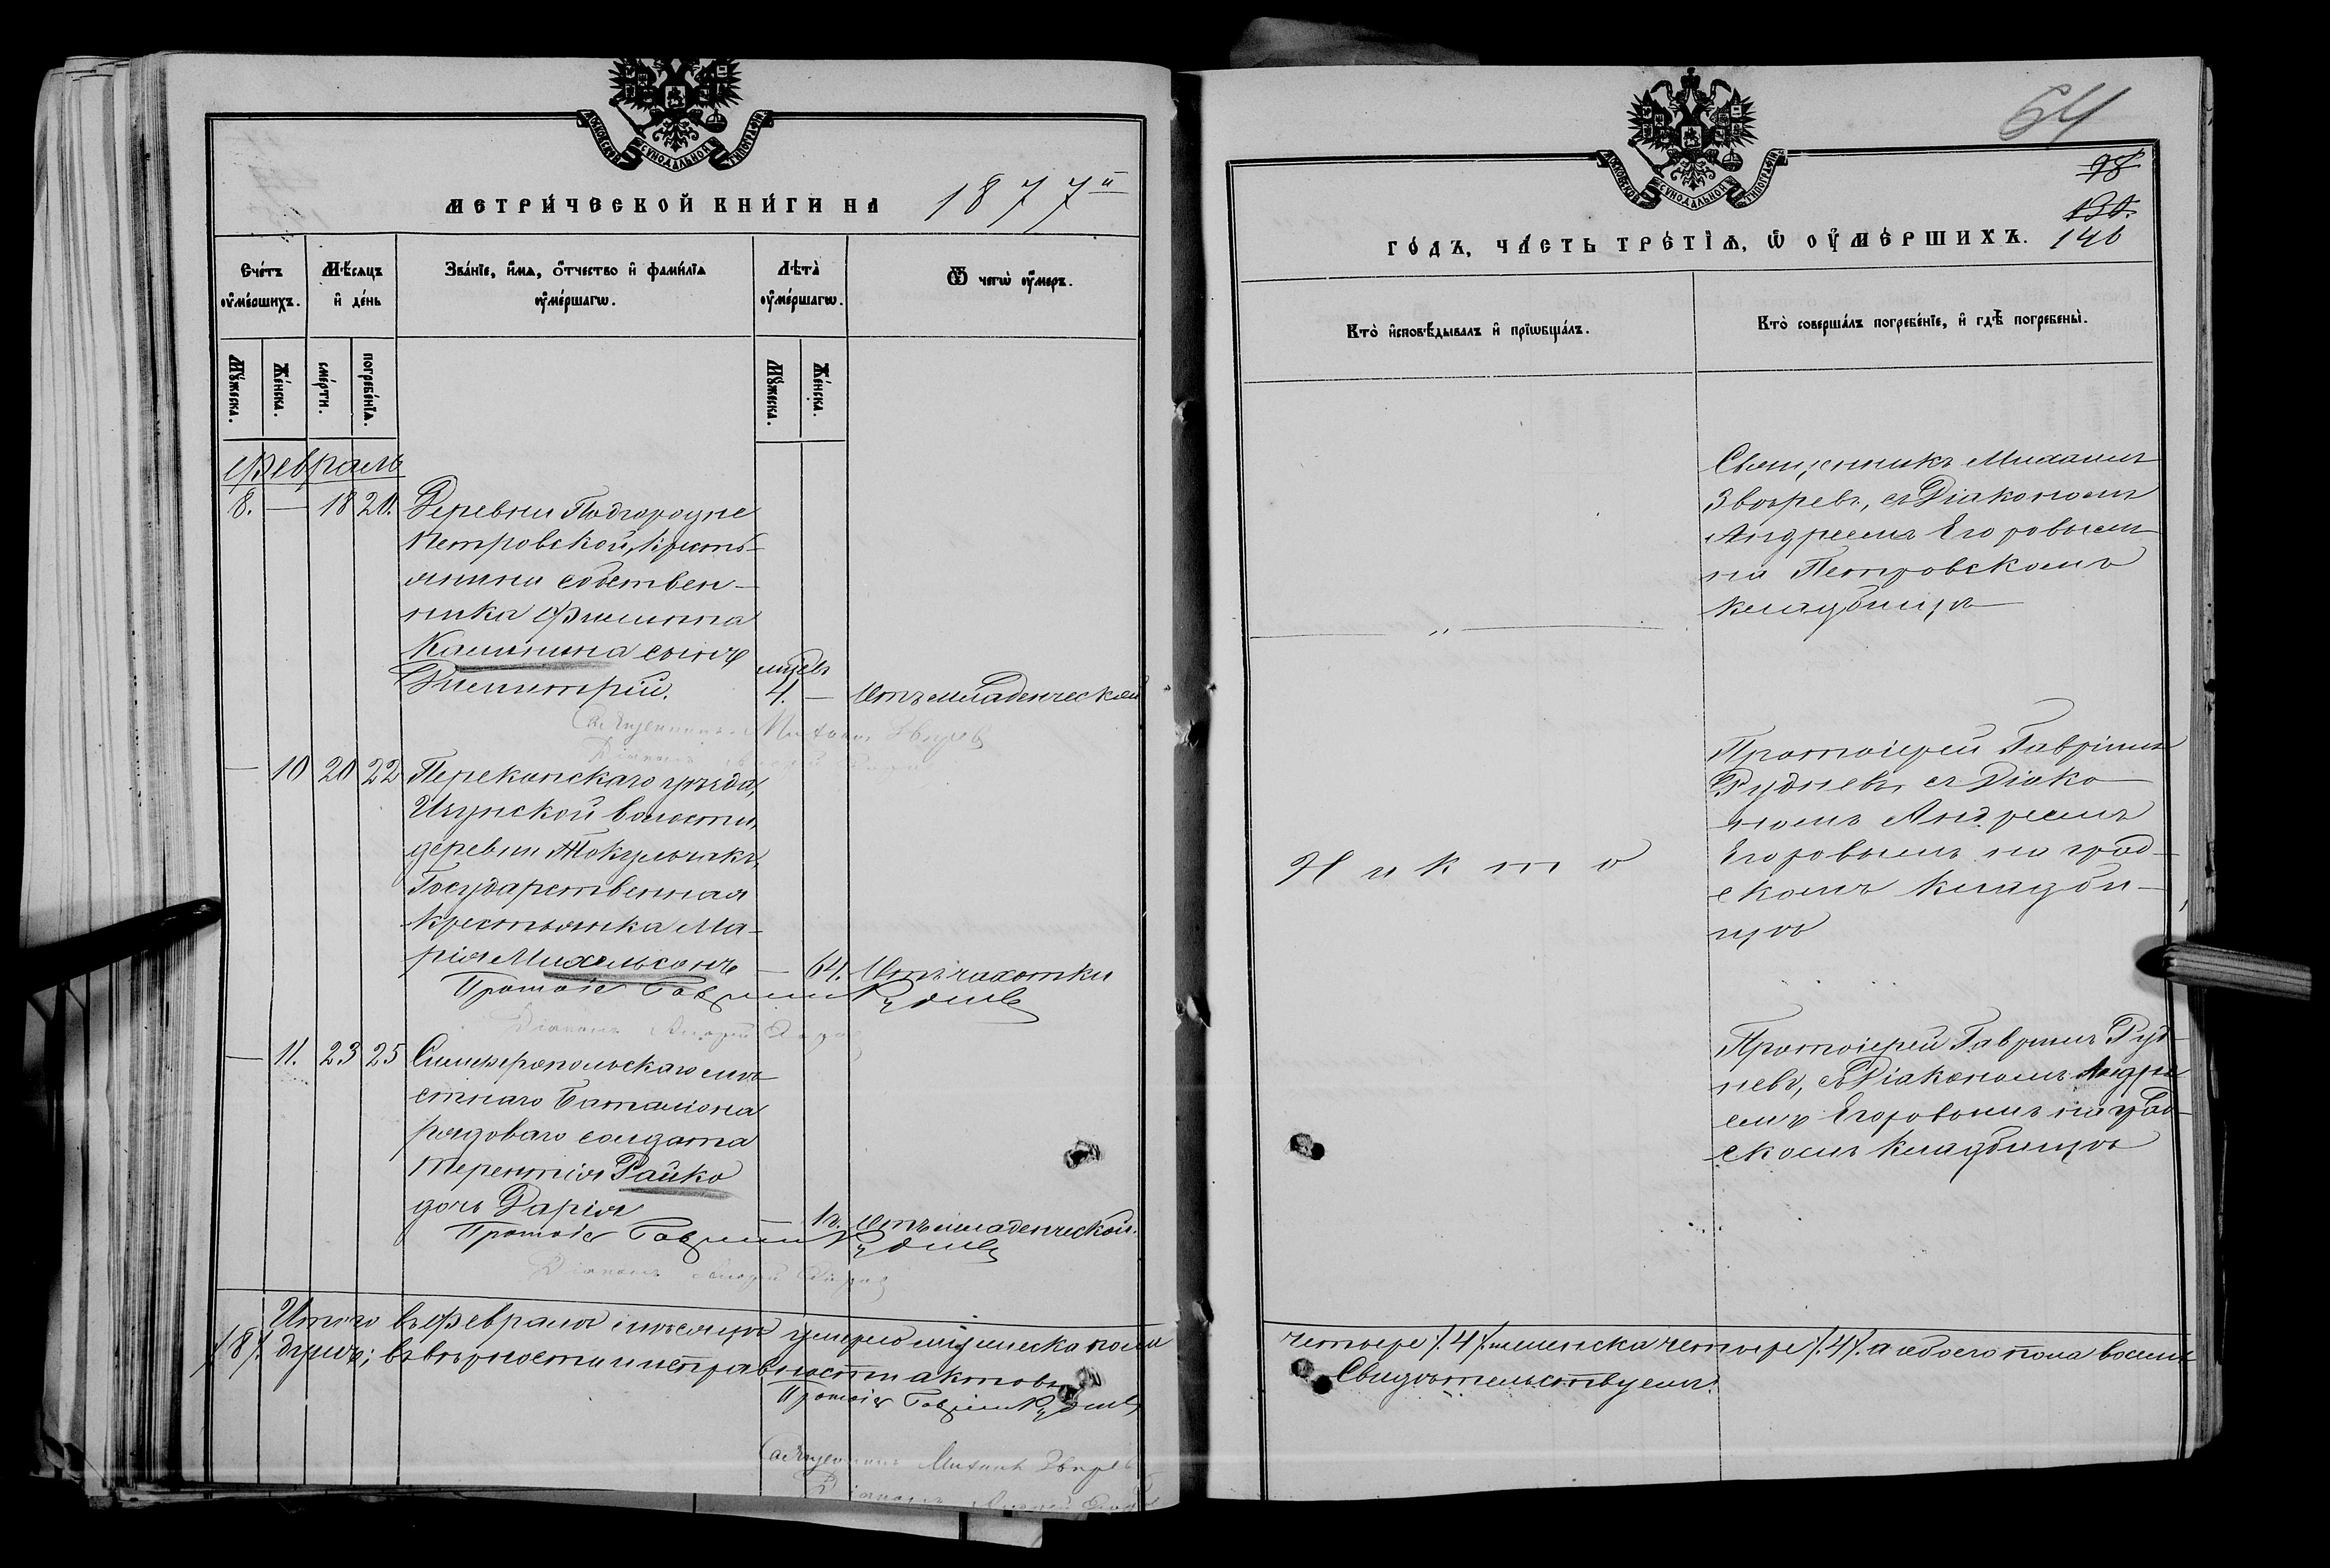 МОСКОВСКОЙ СѴНОДАЛЬНОЙ ТИПОГРАФІИ
МЕТРИ́ЧЕСКОЙ КНИ́ГИ НА 1877й
Сче́тъ ᲂу҆ме́ршихъ.
Мѣ́сяцъ и҆ де́нь
Зва́нїе, и҆́мѧ, ѻ҆́тчество и҆ фамилі́ѧ ᲂу҆ме́ршагѡ.
Лѣта̀ ᲂу҆ме́ршагѡ.
Ѿ чегѡ̀ ᲂу҆́меръ.
Мꙋ́жеска.
Же́нска.
сме́рти.
погребе́нїѧ.
Мꙋ́жеска.
Же́нска.
Февраль
8. — 18 20. Деревни Подгородне
Петровской, кресть-
янина собствен-
ника Филиппа
Калинина сынъ
Дмитрій.
4. — Отъ младенческой
Священникъ Михаилъ Звѣревъ
— 10 20 22 Перекопскаго уѣзда,
волости,
деревни
Государственная
крестьянка Ма-
рія Михельсонъ — 64. Отъ чахотки
Протоіе Гавріилъ Рудневъ
Діаконъ Андрей
— 11. 23 25 Симферопольскаго мѣ-
стнаго Баталіона
рядоваго солдата
Терентія Райко
дочь Дарія — Отъ младенческой.
Протоіе Гавріилъ Рудневъ
Діаконъ Андрей
Итого въ Февралѣ мѣсяцѣ умерло мужеска пола
/8/. душъ; въ вѣрности и исправности актовъ
Протоіе Гавріилъ Рудневъ
Священникъ Михаилъ Звѣревъ
Діаконъ Андрей
64
МОСКОВСКОЙ СѴНОДАЛЬНОЙ ТИПОГРАФІИ
98
130.
146
ГО́ДЪ, ЧА́СТЬ ТРЕ́ТЇѦ, Ѡ҆ ОУ҆МЕ́РШИХЪ.
Кто̀ и҆сповѣ́дывалъ и҆ прїѡбща́лъ.
Кто̀ соверша́лъ погребе́нїе, и҆ гдѣ̀ погребены̀.
Священникъ Михаилъ
Звѣревъ, съ Діакономъ
Андреемъ Егоровымъ
на Петровскомъ
кладбищѣ
— „ —
Протоіерей Гавріилъ
Рудневъ, съ Діако-
номъ Андреемъ
Егоровымъ на град-
скомъ кладби-
щѣ
Никто
Протоіерей Гавріилъ Руд-
невъ, съ Діакономъ Андре-
емъ Егоровымъ на град-
скомъ кладбищѣ
четыре /.4/. женска четыре /.4/. а обоего пола восемь
Свидѣтельствуемъ.